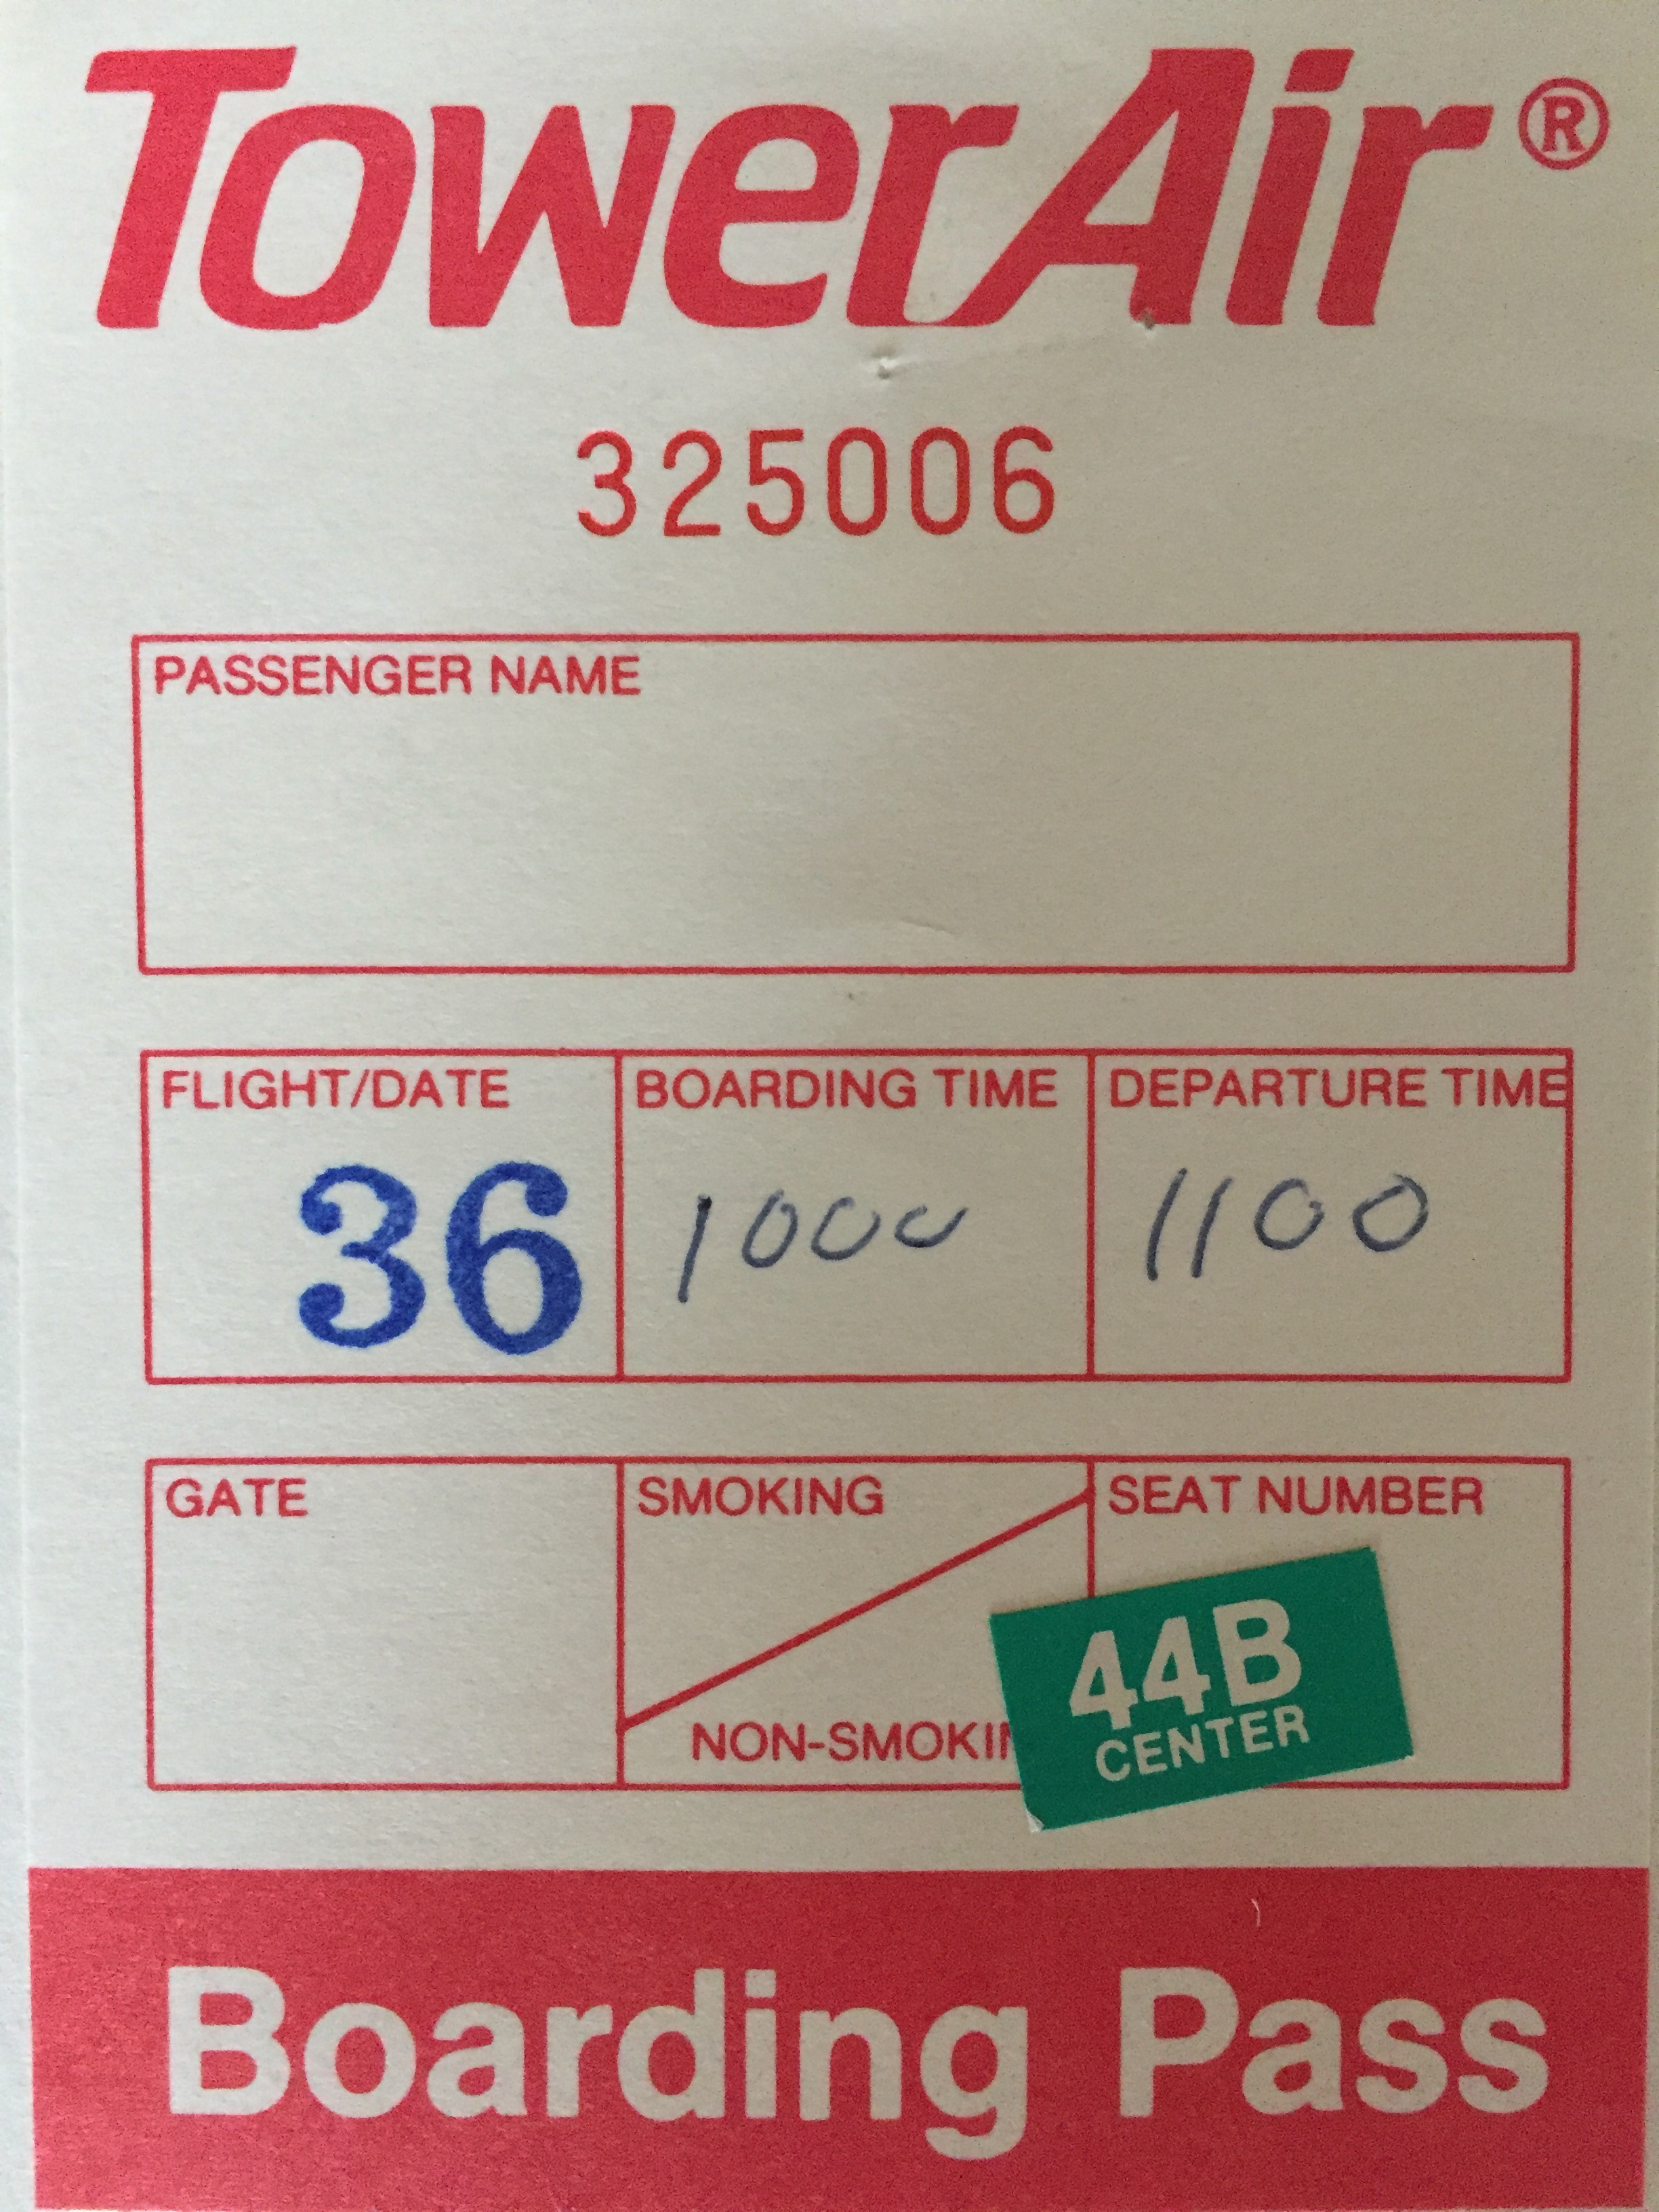 TowerAir®
325006
PASSENGER NAME
FLIGHT/DATE BOARDING TIME DEPARTURE TIME
36 1000 1100
GATE SMOKING SEAT NUMBER
44B
NON-SMOKIN CENTER
Boarding Pass